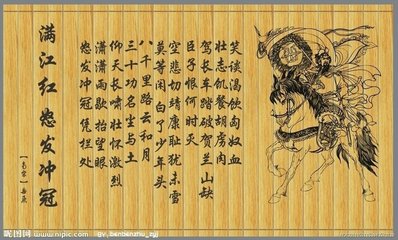 满江红 怒发冲冠
[南宋] 岳飞
怒发冲冠凭栏处
潇潇雨歇抬望眼
仰天长啸壮怀激烈
三十功名尘与土
八千里路云和月
莫等闲白了少年头
空悲切靖康耻犹未雪
臣子恨何时灭
驾长车踏破贺兰山缺
壮志饥餐胡虏肉
笑谈渴饮匈奴血
昵图网
www.nipic.com